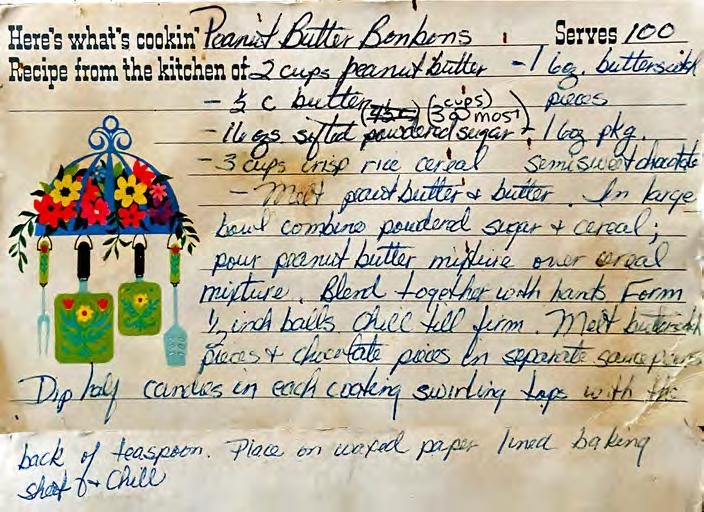 Here's what's cookin' Peanut Butter Bonbons Serves 100
Recipe from the kitchen of 2 cups peanut butter - 1 6oz. butterscotch
- ½ c butter (cups) pieces
(3 @ most)
- 16 ozs. sifted powdered sugar - 1 6oz pkg.
- 3 cups crisp rice cereal semisweet chocolate
- Melt peanut butter & butter. In large
bowl combine powdered sugar & cereal;
pour peanut butter mixture over cereal
mixture. Blend together with hands Form
½ inch balls Chill till firm. Melt butterscotch
pieces & chocolate pieces in separate saucepans
Dip half candies in each coating swirling tops with the
back of teaspoon. Place on waxed paper lined baking
sheet & Chill